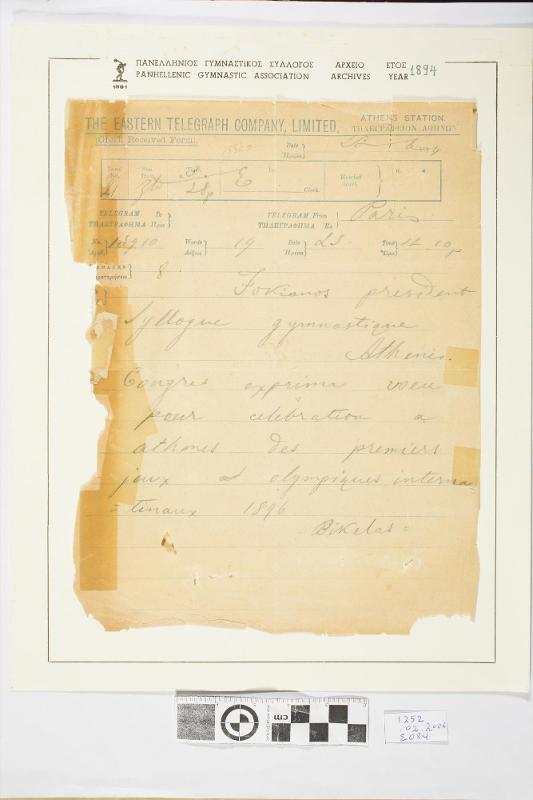 ΠΑΝΕΛΛΗΝΙΟΣ ΓΥΜΝΑΣΤΙΚΟΣ ΣΥΛΛΟΓΟΣ ΑΡΧΕΙΟ ΕΤΟΣ
PANHELLENIC GYMNASTIC ASSOCIATION ARCHIVES YEAR 1894
1891
THE EASTERN TELEGRAPH COMPANY, LIMITED.
ATHENS STATION.
ΤΗΛΕΓΡΑΦΕΙΟΝ ΑΘΗΝΩΝ
Clerk Received Form
Date
E
Clerk.
TELEGRAM To
ΤΗΛΕΓΡΑΦΗΜΑ Πρὸς
TELEGRAM From Paris
ΤΗΛΕΓΡΑΦΗΜΑ Ἐκ
No. Words 19 Date 23 Time
8
Fokianos president
Syllogue gymnastique
Athènes.
Congres exprima voeu
pour celebration a
athenes des premiers
jeux olympiques interna=
=tinaux 1896
Bikelas =
cm
1252
02.2006
Σ084